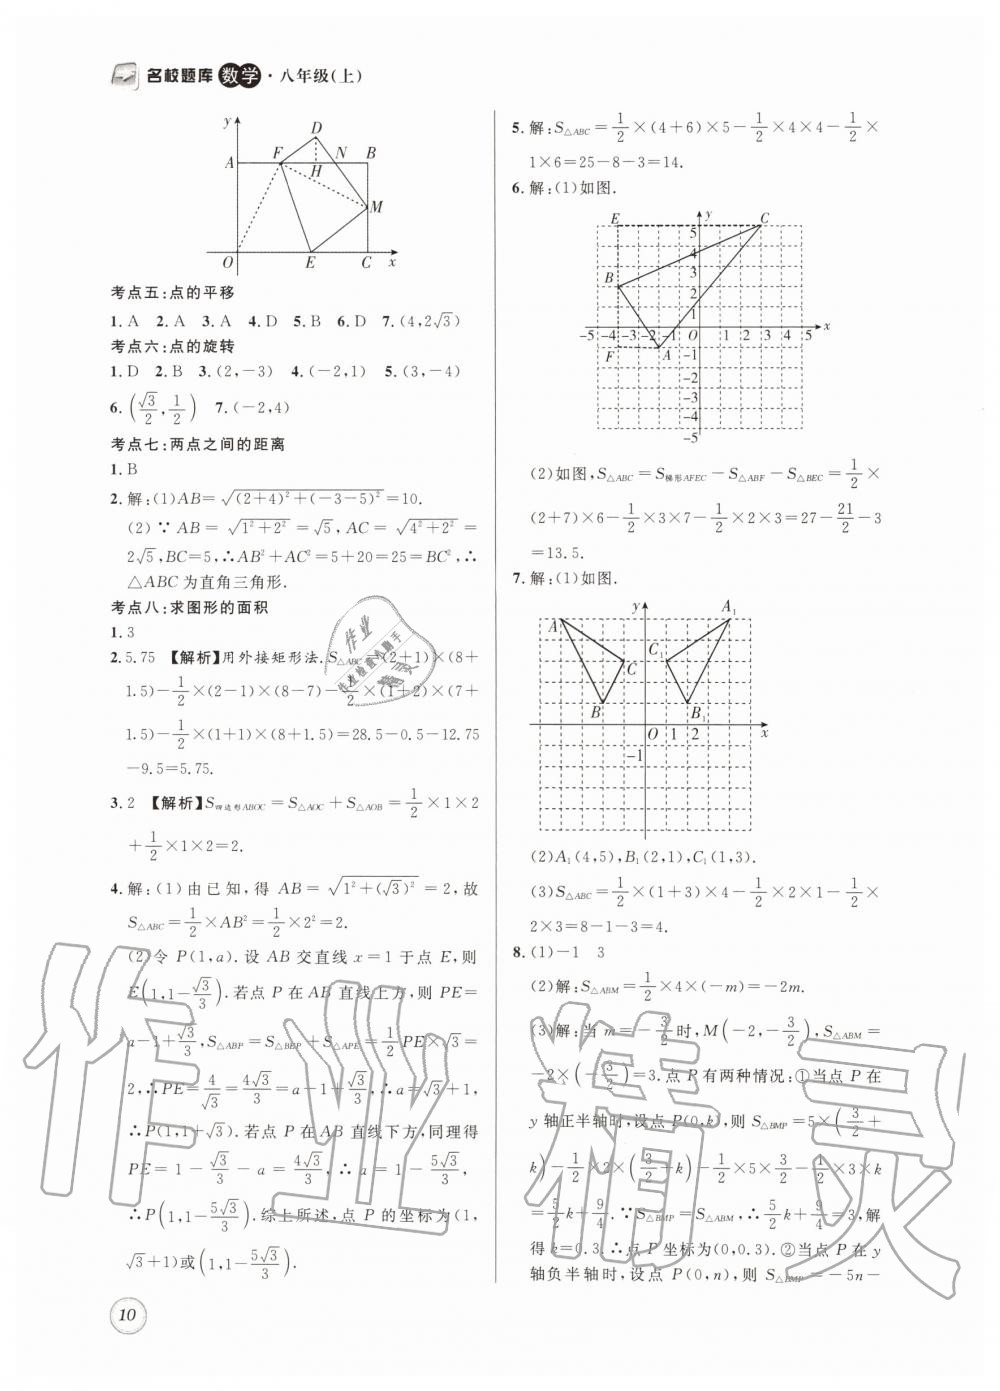 名校题库 数学·八年级(上)
y
D
A F N B
H
M
O E C x
考点五:点的平移
1. A 2. A 3. A 4. D 5. B 6. D 7. (4,2√3)
考点六:点的旋转
1. D 2. B 3. (2,-3) 4. (-2,1) 5. (3,-4)
6. (√3/2,1/2) 7. (-2,4)
考点七:两点之间的距离
1. B
2. 解:(1)AB=√((2+4)²+(-3-5)²)=10.
(2)∵AB=√(1²+2²)=√5,AC=√(4²+2²)=
2√5,BC=5,∴AB²+AC²=5+20=25=BC²,∴
△ABC为直角三角形.
考点八:求图形的面积
1. 3
2. 5.75 【解析】用外接矩形法.S△ABC=(2+1)×(8+
1.5)-1/2×(2-1)×(8-7)-1/2×(1+2)×(7+
1.5)-1/2×(1+1)×(8+1.5)=28.5-0.5-12.75
-9.5=5.75.
3. 2 【解析】S四边形ABOC=S△AOC+S△AOB=1/2×1×2
+1/2×1×2=2.
4. 解:(1)由已知,得AB=√(1²+(√3)²)=2,故
S△ABC=1/2×AB²=1/2×2²=2.
(2)令P(1,a).设AB交直线x=1于点E,则
E(1,1-√3/3).若点P在AB直线上方,则PE=
a-1+√3/3,S△ABP=S△BBP+S△APE=1/2PE×√3=
2,∴PE=4/√3=4√3/3=a-1+√3/3,∴a=√3+1,
∴P(1,1+√3).若点P在AB直线下方,同理得
PE=1-√3/3-a=4√3/3,∴a=1-5√3/3,
∴P(1,1-5√3/3).综上所述,点P的坐标为(1,
√3+1)或(1,1-5√3/3).
10
5. 解:S△ABC=1/2×(4+6)×5-1/2×4×4-1/2×
1×6=25-8-3=14.
6. 解:(1)如图.
E y C
5
4
3
B 2
1
-5 -4 -3 -2 -1 O 1 2 3 4 5 x
F A -1
-2
-3
-4
-5
(2)如图,S△ABC=S梯形AFEC-S△ABF-S△BEC=1/2×
(2+7)×6-1/2×3×7-1/2×2×3=27-21/2-3
=13.5.
7. 解:(1)如图.
y
A A₁
C C₁
B B₁
O 1 2 x
-1
(2)A₁(4,5),B₁(2,1),C₁(1,3).
(3)S△ABC=1/2×(1+3)×4-1/2×2×1-1/2×
2×3=8-1-3=4.
8. (1)-1 3
(2)解:S△ABM=1/2×4×(-m)=-2m.
(3)解:当m=-3/2时,M(-2,-3/2),S△ABM=
-2×(-3/2)=3.点P有两种情况:①当点P在
y轴正半轴时,设点P(0,k),则S△BMP=5×(3/2+
k)-1/2×2×(3/2+k)-1/2×5×3/2-1/2×3×k
=5/2k+9/4.∵S△BMP=S△ABM,∴5/2k+9/4=3,解
得k=0.3.∴点P坐标为(0,0.3).②当点P在y
轴负半轴时,设点P(0,n),则S△BMP=-5n-
作业精灵